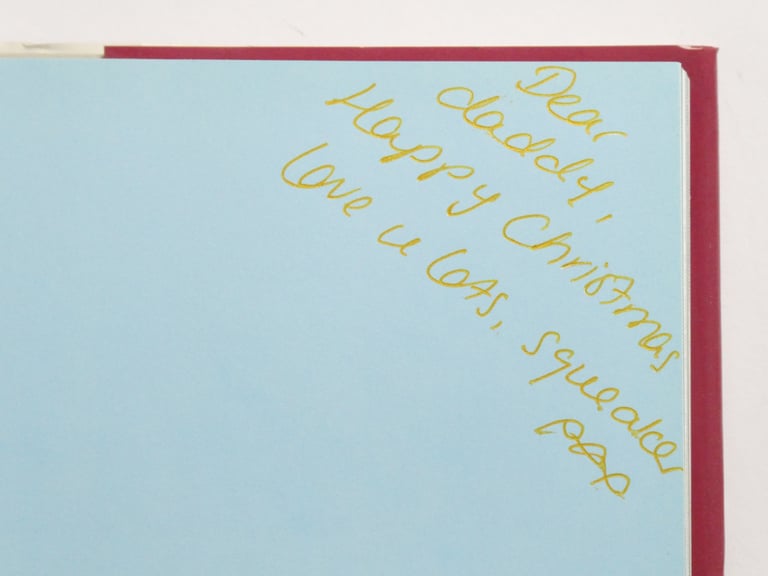 Dear
daddy,
Happy Christmas
love u lots, squeaker
xxx